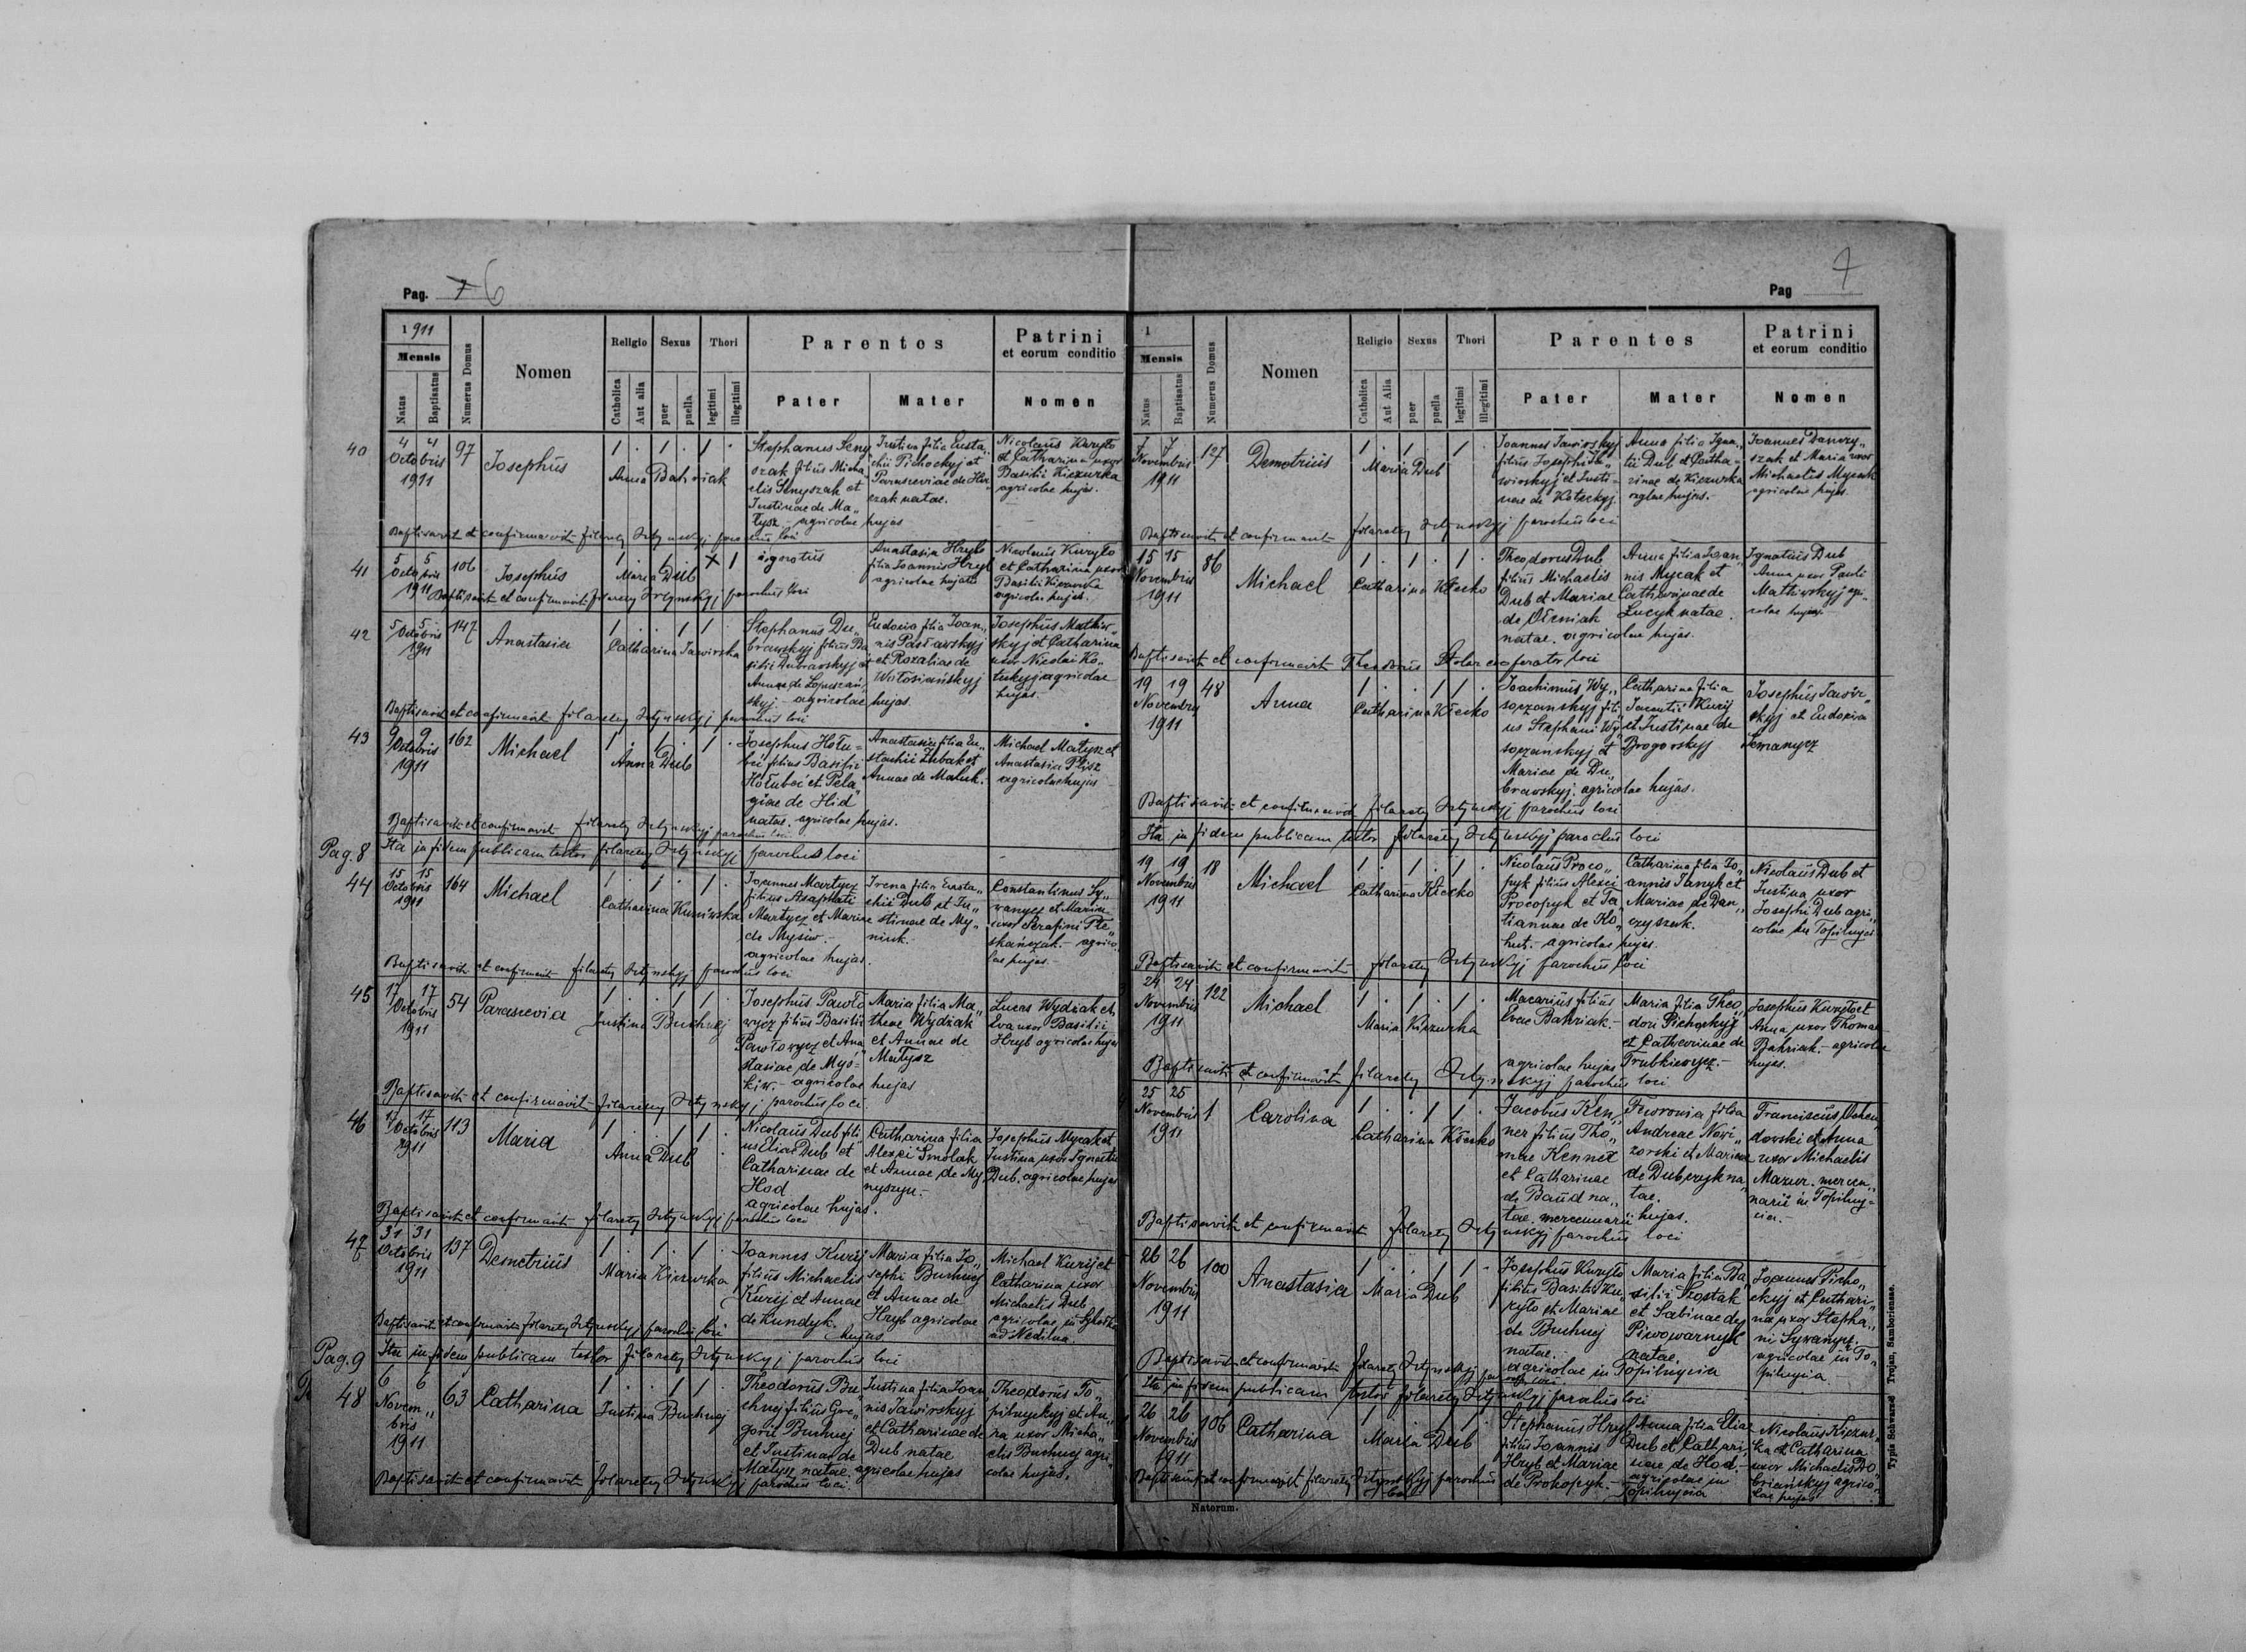 Pag. 7 6
1911
Mensis
Natus
Baptisatus
Numerus Domus
Nomen
Religio
Catholica
Aut alia
Sexus
puer
puella
Thori
legitimi
illegitimi
Parentes
Pater
Mater
Patrini
et eorum conditio
Nomen
40
4 4
Octobris
1911
97
Josephus
Anna Bahriak
Stephanus Seny
szak filius Micha
elis Senyszak et
Justinae de Ma„
łysz - agricolae hujas
Justina filia Eusta„
chii Pichockyj et
Parasceviae de
natae.
Nicolaus Kuryło
et Catharina uxor
Basilii Kiczurka
agricolae hujas.
Baptisavit et confirmavit filarety parochus loci
41
5 5
Octobris
1911
106
Josephus
Maria Dub
ignotus
Anastasia Hryb
filia Ioannis Hryb
agricolae hujatis
Nicolaus Kuryło
et Catharina uxor
Basilii Kiczurka
agricolae hujas.
Baptisavit et confirmavit filarety parochus loci
42
5 5
Octobris
1911
147
Anastasia
Catharina Jawirska
Stephanus Du„
brawskyj filius Ba
silii Dubrawskyj et
Annae de
skyj - agricolae hujas.
Eudoxia filia Ioan„
nis Pasławskyj
et Rozaliae de
Wołosiańskyj
Josephus Mathiw„
skyj et Catharina
uxor Nicolai Ko„
tuckyj agricolae
hujas.
Baptisavit et confirmavit filarety parochus loci
43
9 9
Octobris
1911
162
Michael
Anna Dub
Josephus Hołu=
beć filius Basilii
Hołubeć et Pela
giae de Hid
natae. agricolae hujas.
Anastasia filia Eu„
stachii Zubak et
Annae de
Michael Małysz et
Anastasia Plisz
agricolae hujas
Baptisavit et confirmavit filarety parochus loci
Ita in fidem publicam testor filarety parochus loci
Pag. 8
44
15 15
Octobris
1911
164
Michael
Catharina
Ioannes Martycz
filius Asaphati
Martycz et Mariae
de Mysiw.-
agricolae hujas.
Irena filia Eusta„
chii Dub et Ju„
stinae de My„
niuk.-
Constantinus Sy„
wanycz et Maria
uxor Serafini Ple„
skańczak.- agrico„
lae hujas.-
Baptisavit et confirmavit filarety parochus loci
45
17 17
Octobris
1911
54
Parascevia
Justina Buchnej
Josephus Pawło
wycz filius Basilii
Pawłowycz et Ana„
stasiae de Mys=
kiw.- agricolae hujas
Maria filia Ma„
theae Wydzak
et Annae de
Małysz
Lucas Wydzak et
Eva uxor Basilii
Hryb agricolae hujas
Baptisavit et confirmavit filarety parochus loci.
46
17 17
Octobris
1911
113
Maria
Anna Dub
Nicolaus Dub fili„
us Eliae Dub et
Catharinae de
Hod
agricolae hujas.
Catharina filia
Alexii Smolak
et Annae de My„
nyszyn.-
Josephus Mycak et
Justina uxor Ignatii
Dub. agricolae hujas
Baptisavit et confirmavit filarety parochus loci
47
31 31
Octobris
1911
137
Demetrius
Maria Kiczurka
Ioannes Kurij
filius Michaelis
Kurij et Annae
de Kundyk.
Maria filia Jo„
sephi Buchnej
et Annae de
Hryb agricolae
hujas
Michael Kurij et
Catharina uxor
Michaelis Dub
agricolae in
ad Nedilna.
Baptisavit et confirmavit filarety parochus loci
Ita in fidem publicam testor filarety parochus loci
Pag. 9
48
6 6
Novem„
bris
1911
63
Catharina
Justina Buchnej
Theodorus Bu„
chnej filius Gre„
gorii Buchnej
et Justinae de
Małysz natae. agricolae hujas
Justina filia Ioan
nis Jawirskyj
et Catharinae de
Dub natae
Theodorus To„
pilnyckyj et An„
na uxor Micha„
elis Buchnej agri„
colae hujas.
Baptisavit et confirmavit filarety parochus loci.
Pag 7
1
Mensis
Natus
Baptisatus
Numerus Domus
Nomen
Religio
Catholica
Aut Alia
Sexus
puer
puella
Thori
legitimi
illegitimi
Parentes
Pater
Mater
Patrini
et eorum conditio
Nomen
7 7
Novembris
1911
127
Demetrius
Maria Dub
Ioannes Jawirskyj
filius Josephi Ja„
wirskyj et Justi=
nae de Kotuckyj.
Anna filia Igna„
tii Dub et Catha=
rinae de Kiczurka
agricolae hujas.-
Ioannes Danczy„
szak et Maria uxor
Michaelis Mycak
agricolae hujas.
Baptisavit et confirmavit filarety parochus loci
15 15
Novembris
1911
86
Michael
Catharina Kłecko
Theodorus Dub
filius Michaelis
Dub et Mariae
de Oleniak
natae. agricolae hujas.
Anna filia Ioan„
nis Mycak et
Catharinae de
Lucyk natae.
Ignatius Dub
Anna uxor Pauli
Mathiwskyj agri„
colae hujas.-
Baptisavit et confirmavit Theodorus Stolar cooperator loci
19 19
Novembris
1911
48
Anna
Catharina Kłecko
Joachimus Wy„
soczanskyj fili„
us Stephani Wy„
soczanskyj et
Mariae de Du„
brawskyj. agricolae hujas.
Catharina filia
Kurij
et Justinae de
Brogowskyj
Josephus Jawir
skyj et Eudoxia
Semanycz
Baptisavit et confirmavit filarety parochus loci
Ita in fidem publicam testor filarety parochus loci
19 19
Novembris
1911
18
Michael
Catharina Kłecko
Nicolaus Proco„
pyk filius Alexii
Procopyk et Ta„
tiannae de Ho„
hut.- agricolae hujas.
Catharina filia Jo„
annis Janyk et
Mariae de Dan„
czyszak.
Nicolaus Dub et
Justina uxor
Josephi Dub agri„
colae in
Baptisavit et confirmavit filarety parochus loci
24 24
Novembris
1911
122
Michael
Maria Kiczurka
Macarius filius
Evae Bahriak.-
agricolae hujas
Maria filia Theo„
dori Pichockyj
et Catharinae de
Trubkiewycz.-
Josephus Kuryło et
Anna uxor Thomae
Bahriak.- agricolae
hujas.
Baptisavit et confirmavit filarety parochus loci
25 25
Novembris
1911
1
Carolina
Catharina Kłecko
Jacobus Ken„
ner filius Tho„
mae Kenner
et Catharinae
de Baud na„
tae. mercenarii hujas.
Fewronia filia
Andreae Nowi„
zorski et Mariae
de Dubczyk na„
tae.
Franciscus
dowski et Anna
uxor Michaelis
Mazur. mercen„
narii in Topilny=
cia.-
Baptisavit et confirmavit filarety parochus loci
26 26
Novembris
1911
100
Anastasia
Maria Dub
Josephus Kuryło
filius Basilii Ku„
ryło et Mariae
de Buchnej
natae.
agricolae in Topilnycia
Maria filia Ba„
silii Szostak
et Sabinae de
Piwowarnyk
natae.
Ioannes Picho„
ckyj et Cathari„
na uxor Stepha„
ni Sywanycz.
agricolae in To„
pilnycia.
Baptisavit et confirmavit filarety parochus loci
Ita in fidem publicam testor filarety parochus loci
26 26
Novembris
1911
106
Catharina
Maria Dub
Stephanus Hryb
filius Ioannis
Hryb et Mariae
de Prokopyk.-
Anna filia Eliae
Dub et Cathari„
nae de Hod.-
agricolae in
Topilnycia
Nicolaus Kiczur„
ka et Catharina
uxor Michaelis Do„
briańskyj agrico„
lae hujas.
Baptisavit et confirmavit filarety parochus
loci
Natorum.
Typis Schwarz & Trojan, Samboriensae.